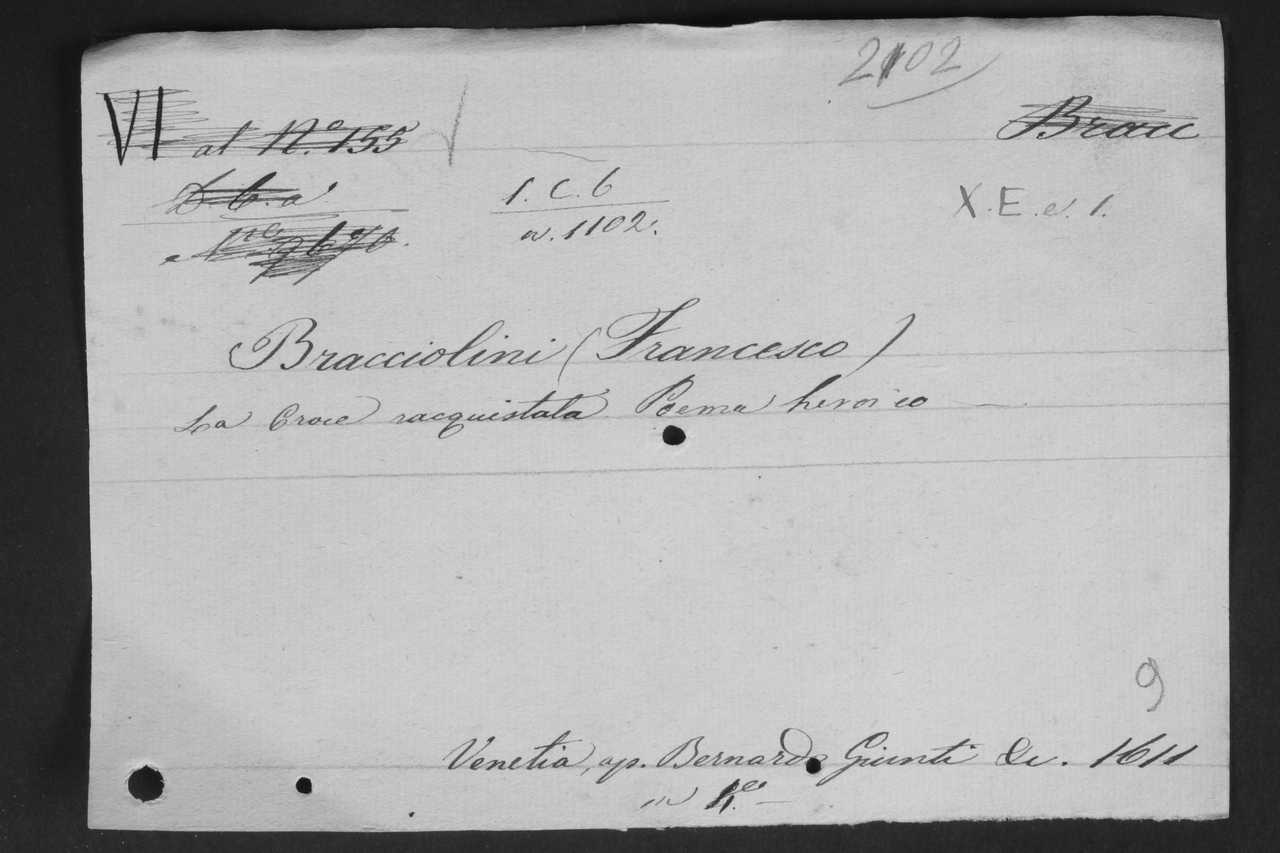 2102
VI al N.º 155
Bracc
1. C. 6
X. E. e. 1.
a. 1102.
Bracciolini (Francesco)
La Croce racquistata Poema heroico
9
Venetia, ap. Bernardo Giunti &c. 1611
in 4.º